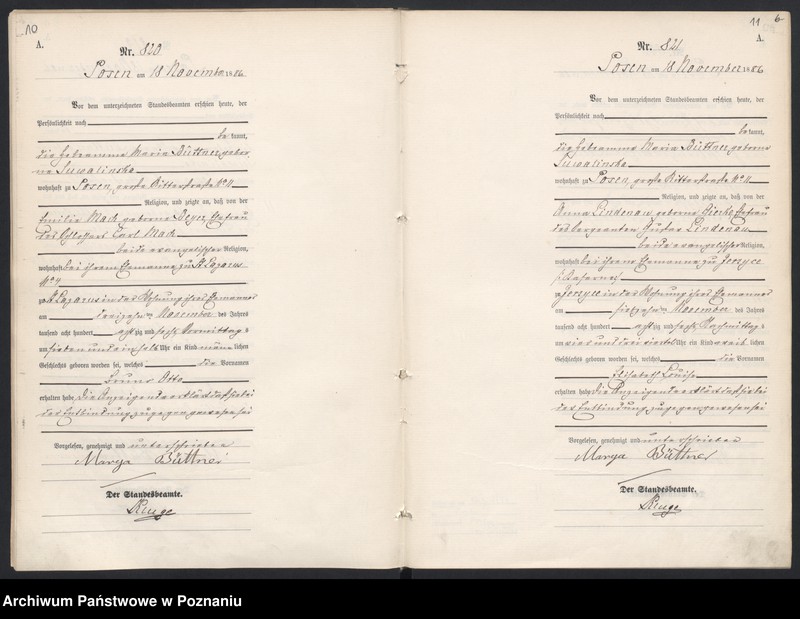 10
A.
Nr. 820
Posen am 18 November 1886
Vor dem unterzeichneten Standesbeamten erschien heute, der
Persönlichkeit nach
bekannt,
die Hebeamme Maria Büttner, gebor
ne Suwalinska
wohnhaft zu Posen, große Ritterstraße № 11
Religion, und zeigte an, daß von der
Emilie Mach geborene Beyer, Ehefrau
des Schlossers Carl Mach
beide evangelischer Religion,
wohnhaft bei ihrem Ehemanne zu St Lazarus
zu St Lazarus in der Wohnung ihres Ehemannes
am dreizehnten November des Jahres
tausend acht hundert achtzig und sechs Vormittags
um sieben und ein halb Uhr ein Kind männlichen
Geschlechts geboren worden sei, welches die Vornamen
Bruno Otto
erhalten habe. Die Anzeigende erklärt daß sie bei
der Entbindung zugegen gewesen sei
Vorgelesen, genehmigt und unterschrieben
Marya Büttner
Der Standesbeamte.
Kluge
11
6
A.
Nr. 821
Posen am 18 November 1886
Vor dem unterzeichneten Standesbeamten erschien heute, der
Persönlichkeit nach
bekannt,
die Hebeamme Maria Büttner, geborene
Suwalinska
wohnhaft zu Posen, große Ritterstraße № 11
Religion, und zeigte an, daß von der
Anna Lindenau geborne Ehefrau
des Sergeanten Gustav Lindenau
beide evangelischer Religion,
wohnhaft bei ihrem Ehemanne zu Jerzyce
zu Jerzyce in der Wohnung ihres Ehemannes
am November des Jahres
tausend acht hundert achtzig und sechs Nachmittags
um und drei viertel Uhr ein Kind weiblichen
Geschlechts geboren worden sei, welches die Vornamen
Elisabeth Louise
erhalten habe. Die Anzeigende erklärt daß sie bei
der Entbindung zugegen gewesen sei
Vorgelesen, genehmigt und unterschrieben
Marya Büttner
Der Standesbeamte.
Kluge
Archiwum Państwowe w Poznaniu